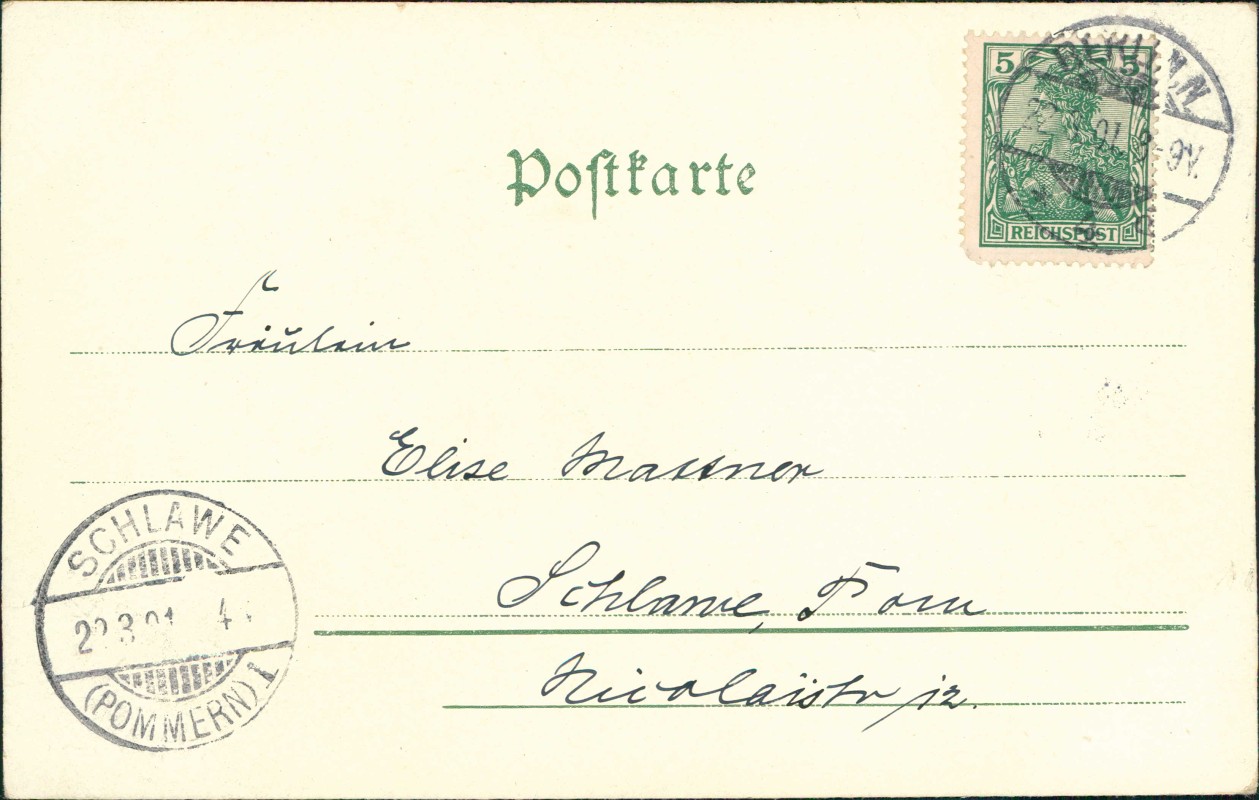 Postkarte
5 5
REICHSPOST
BERLIN
01. 8-9V.
Fräulein
Elise Mattner
Schlawe, Pom
Nicolaistr 12.
SCHLAWE
3 01 4
(POMMERN) 1